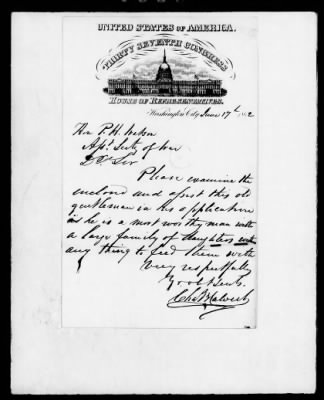 UNITED STATES OF AMERICA.
THIRTY SEVENTH CONGRESS
HOUSE OF REPRESENTATIVES.
Washington City, June 17th 1862
Hon P. H. Watson
Asst. Secty of War
Dr Sir
Please examine the
enclosed and assist this old
gentleman in his application
as he is a most worthy man with
a large family of daughters
any thing to feed them with
Very respectfully
Yr obt Servt.
Chas B Calvert